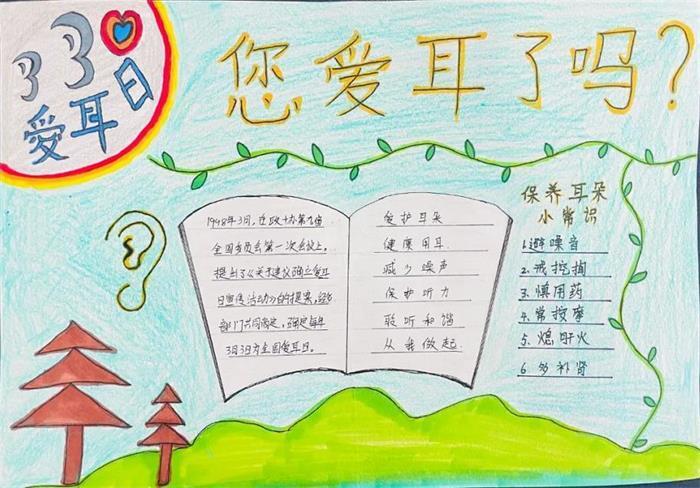 33
爱耳日
您爱耳了吗?
1998年3月,在政协第九届
全国委员会第一次会议上。
提出了《关于建议确立爱耳
日宣传活动》的提案,经
部门共同商定,确定每年
3月3日为全国爱耳日。
爱护耳朵
健康用耳
减少噪声
保护听力
聆听和谐
从我做起
保养耳朵
小常识
1.避噪音
2.戒挖掏
3.慎用药
4.常按摩
5.熄肝火
6.多补肾